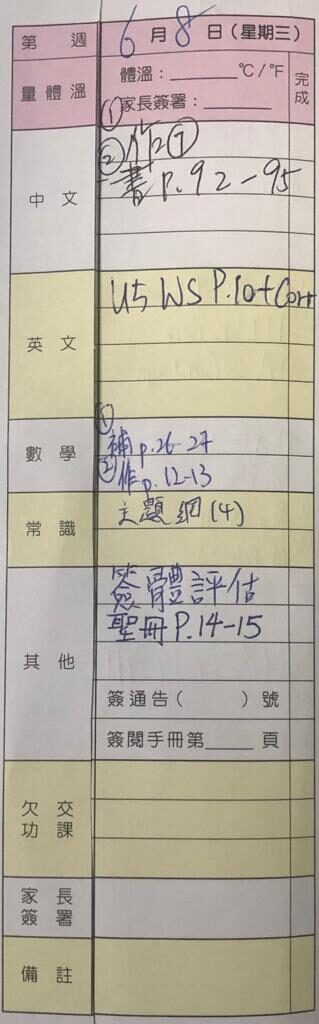 第 週 6月8日(星期三)
量體溫 體溫:______°C/°F 完成
家長簽署:______
中文 ① 作2⑦
② 書 p.92-95
英文 U5 WS P.10+Corr
數學 ① 補 p.26-27
② 作 p.12-13
常識 主題網(4)
其他 簽體評估
聖冊 P.14-15
簽通告( )號
簽閱手冊第____頁
欠交功課
家長簽署
備註